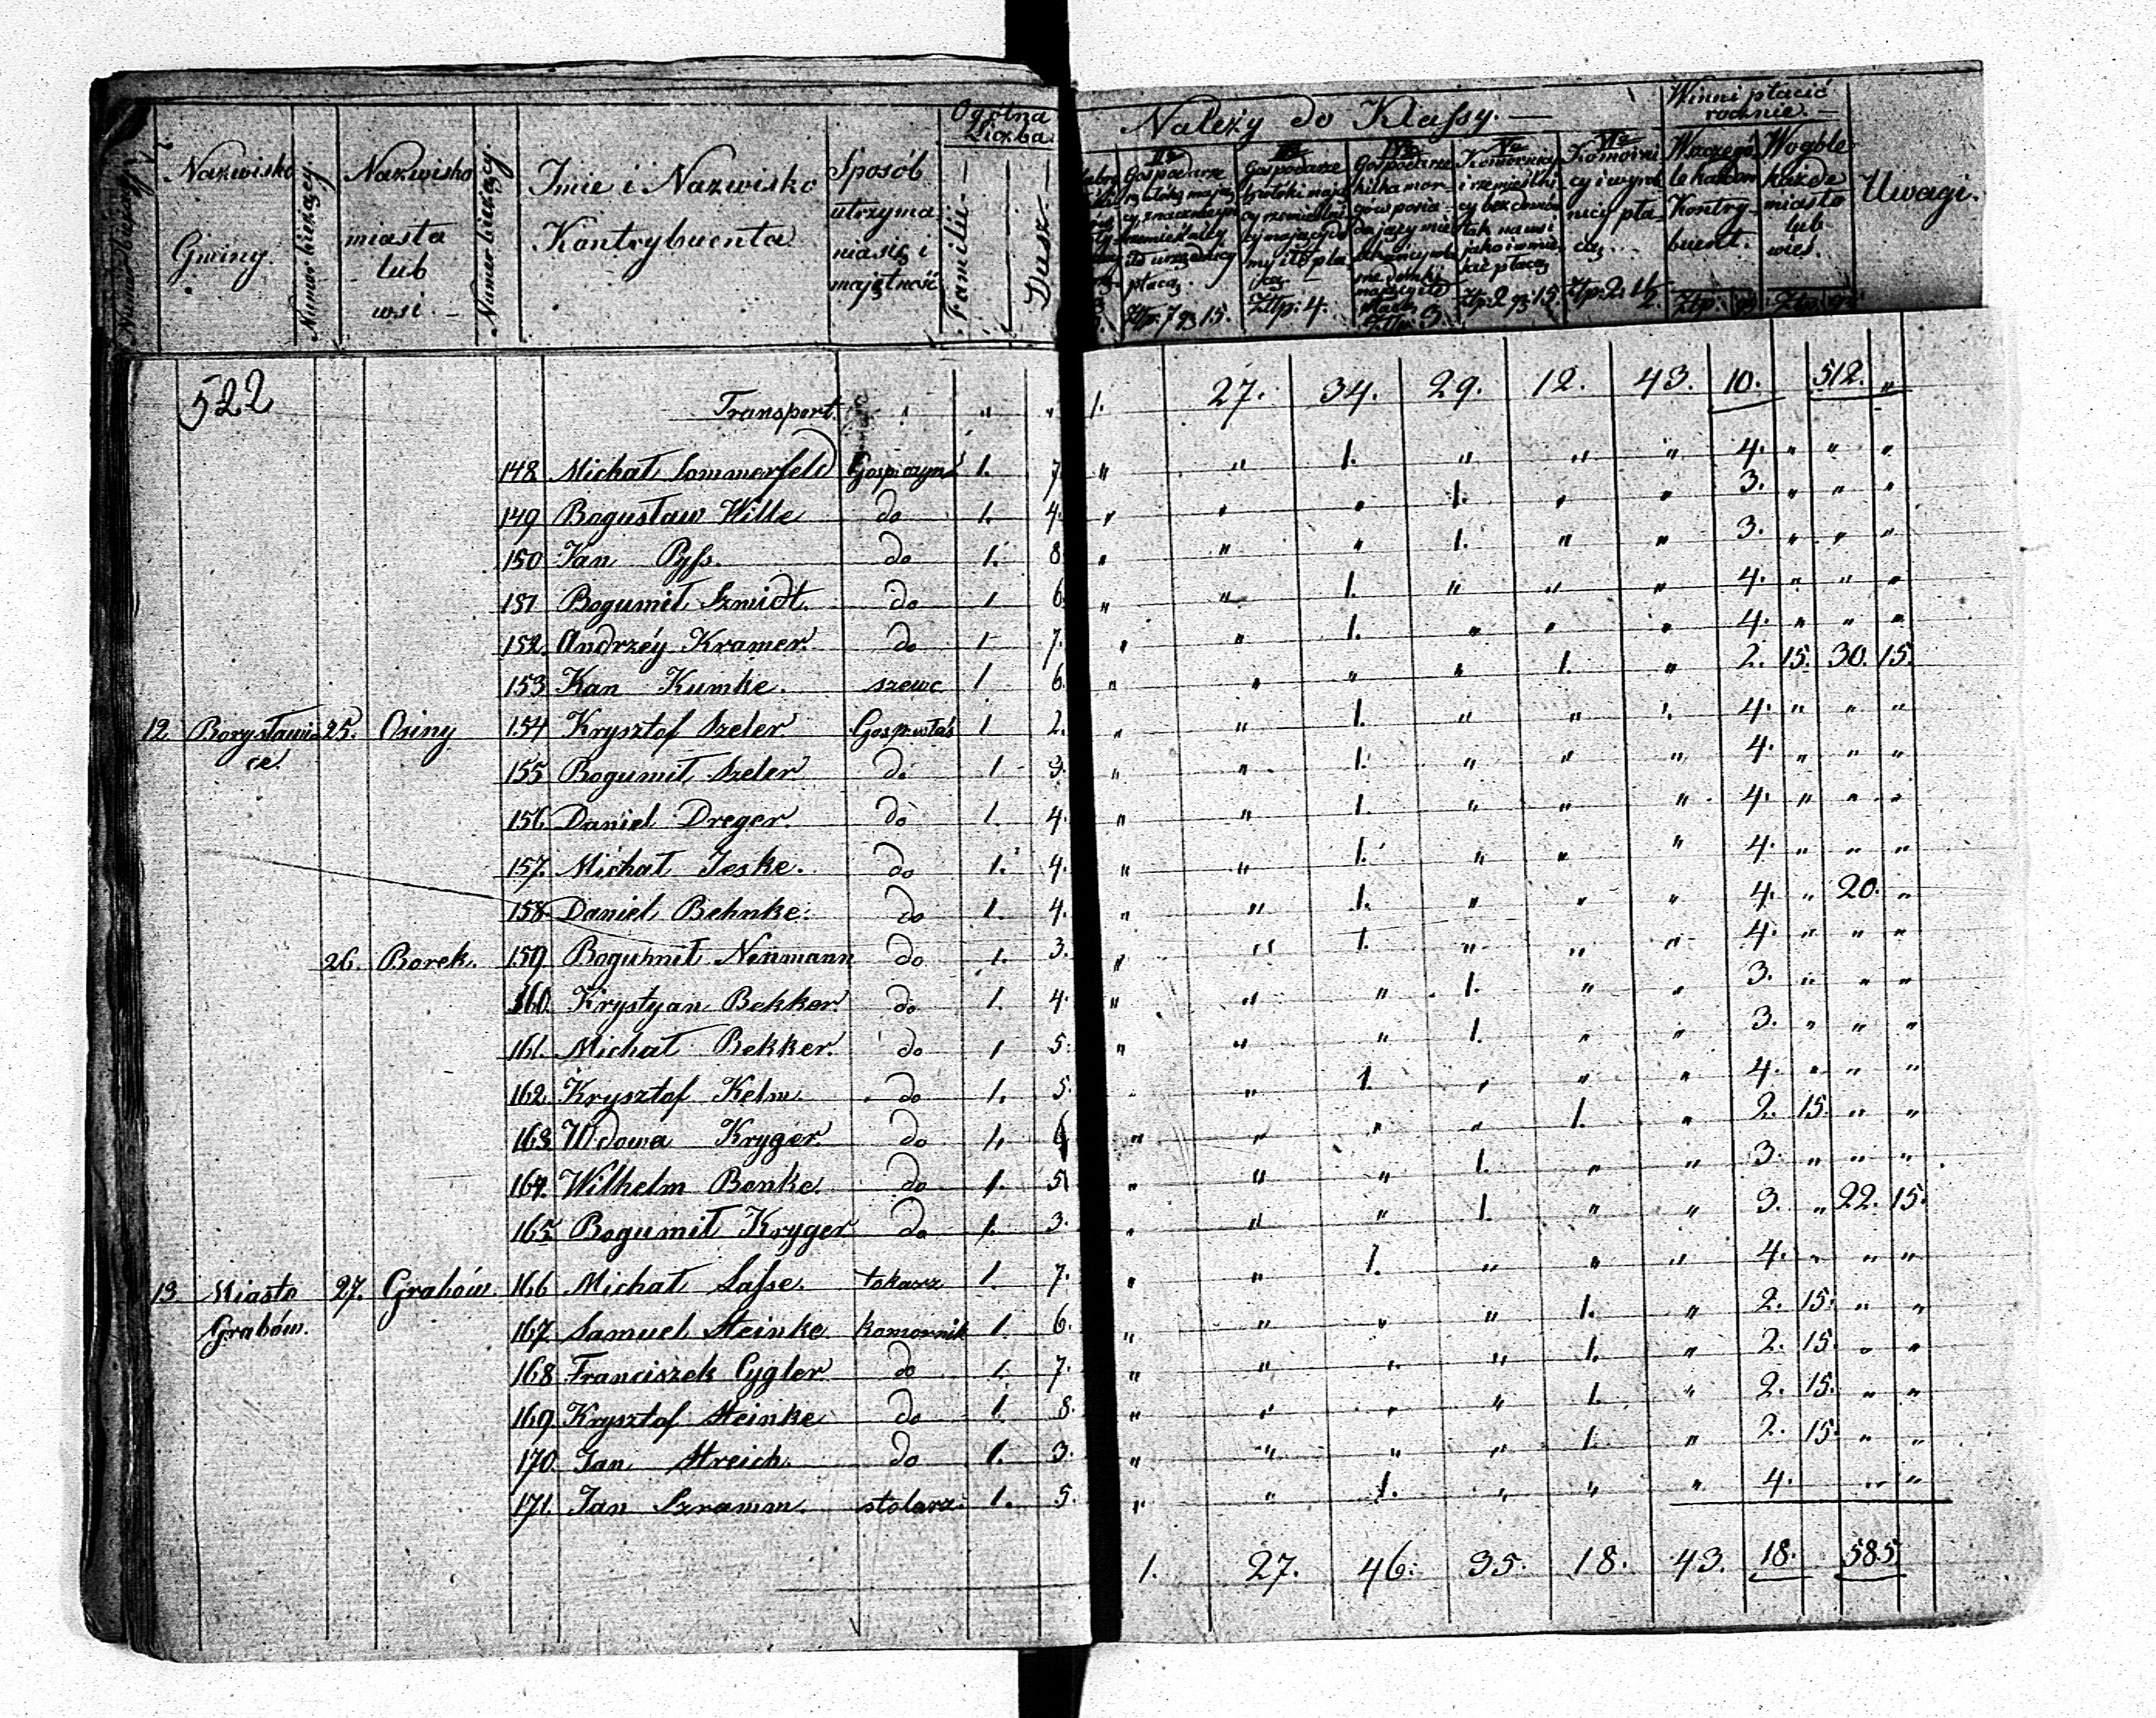 Nazwisko Gminy.
Numer bieżący.
Nazwisko miasta lub wsi.
Numer bieżący.
Imie i Nazwisko Kontrybuenta
Sposób utrzymania się i majętność
Ogólna Liczba
Familii
Dusz
Należy do Klassy.
IIa Gospodarze
płacą. Złp: 7 gr 15.
IIIa Gospodarze
Złp: 4.
IVa Gospodarze kilka mor-
Złp: 3.
Va Komornicy i rzemieślni-
cy bez
płacą Złp: 2 gr 15.
VIa Komorni-
cy i wyrob-
nicy pła-
cą. Złp: 2.
Winni płacić rocznie.
Wszczegó-
le każdem
Kontry-
buent.
Złp: gr
Wogóle
każde
miasto
lub
wieś.
Złp: gr
Uwagi.
522 Transport. " " " 1. 27. 34. 29. 12. 43. 10. 512. "
148. Michał Sommerfeld 1. 7 " " 1. " " " 4. " " "
149 Bogusław Wille do 1. 4. " " " 1. " " 3. " " "
150 Jan Pyss. do 1. 8 " " " 1. " " 3. " " "
151 Bogumił Szmidt. do 1 6 " " 1. " " " 4. " " "
152. Andrzéy Kramer. do 1 7. " " 1. " " " 4. " " "
153 Kan Kumke. szewc 1 6 " " " " 1. " 2. 15. 30. 15.
12. Borysławi- 25. Osiny 154 Krysztof Szeler 1 2. " " 1. " " " 4. " " "
ce. 155 Bogumił Szeler do 1 9. " " 1. " " " 4. " " "
156 Daniel Dreger. do 1. 4. " " 1. " " " 4. " " "
157. Michał Jeske. do 1. 4. " " 1. " " " 4. " " "
158 Daniel Behnke. do 1. 4. " " 1. " " " 4. " 20. "
26. Borek. 159 Bogumił Nenmann do 1. 3. " " 1. " " " 4. " " "
160. Krystyan Bekker. do 1. 4. " " " 1. " " 3. " " "
161. Michał Bekker. do 1 5. " " " 1. " " 3. " " "
162. Krysztof Kelm. do 1. 5. " " 1. " " " 4. " " "
163 Wdowa Kryger. do 1. " " " " 1. " 2. 15. " "
164. Wilhelm Benke. do 1. 5 " " " 1. " " 3. " " "
165 Bogumił Kryger do 1. 3. " " " 1. " " 3. " 22. 15.
13. Miasto 27. Grabów. 166 Michał Sasse. tokarz 1. 7. " " 1. " " " 4. " " "
Grabów. 167. Samuel Steinke komornik 1. 6. " " " " 1. " 2. 15. " "
168 Franciszek Cygler do 1. 7. " " " " 1. " 2. 15. " "
169 Krysztof Steinke do 1. 8. " " " " 1. " 2. 15. " "
170. Jan Streich. do 1. 3. " " " " 1. " 2. 15. " "
171. Jan Szramm. stolarz. 1. 5. " " 1. " " " 4. " "
1. 27. 46. 35. 18. 43. 18. 585